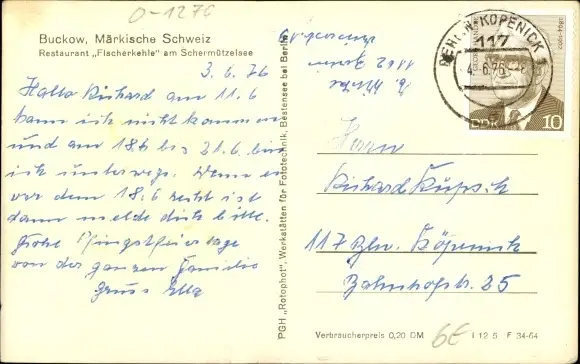 O-1276
Buckow, Märkische Schweiz
Restaurant „Fischerkehle" am Schermützelsee
3.6.76
Hallo Richard am 11.6
kann ich nicht kommen
und am 18.6 bis 21.6 bin
ich unterwegs. Wenn es
vor dem 18.6 recht ist
dann melde dich bitte.
Frohe Pfingstfeiertage
von der ganzen Familie
Gruss Ella
PGH „Rotophot", Werkstätten für Fototechnik, Bestensee bei Berlin
1162 Berlin
BERLIN-KÖPENICK 1
117
4.6.76
DDR 10
Herrn
Richard Kupsch
117 Bln. Köpenick
Bahnhofstr. 25
Verbraucherpreis 0,20 DM
6€
I 12 5 F 34-64